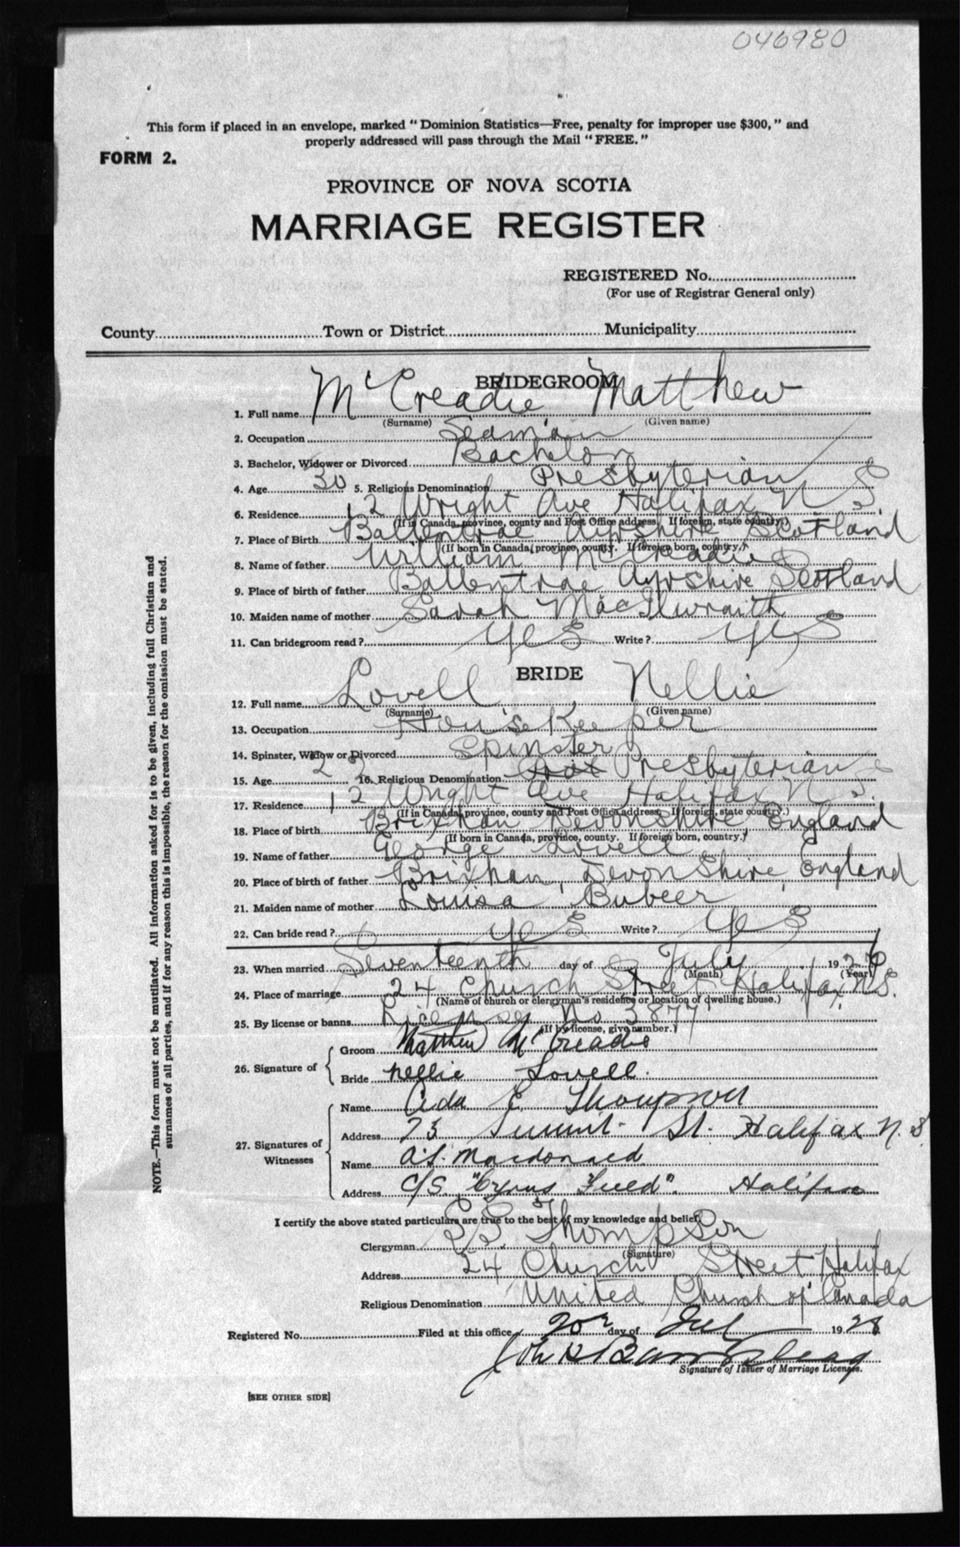 046980
This form if placed in an envelope, marked "Dominion Statistics—Free, penalty for improper use $300," and
properly addressed will pass through the Mail "FREE."
FORM 2.
PROVINCE OF NOVA SCOTIA
MARRIAGE REGISTER
REGISTERED No.
(For use of Registrar General only)
County Town or District Municipality
BRIDEGROOM
1. Full name McCreadie Matthew
(Surname) (Given name)
2. Occupation Seaman
3. Bachelor, Widower or Divorced Bachelor
4. Age 30 5. Religious Denomination Presbyterian
6. Residence 12 Wright Ave Halifax N S
(If in Canada, province, county and Post Office address. If foreign, state country.)
7. Place of Birth Ballentrae Ayrshire Scotland
(If born in Canada, province, county. If foreign born, country.)
8. Name of father William McCreadie
9. Place of birth of father Ballentrae Ayrshire Scotland
10. Maiden name of mother Sarah MacIlwraith
11. Can bridegroom read? yes Write? yes
BRIDE
12. Full name Lovell Nellie
(Surname) (Given name)
13. Occupation HouseKeeper
14. Spinster, Widow or Divorced Spinster
15. Age 16. Religious Denomination Presbyterian
17. Residence 12 Wright Ave Halifax N.S.
(If in Canada, province, county and Post Office address. If foreign, state country.)
18. Place of birth Brixham Devonshire England
(If born in Canada, province, county. If foreign born, country.)
19. Name of father George Lovell
20. Place of birth of father Brixham, Devon Shire, England
21. Maiden name of mother Louisa Bubeer
22. Can bride read? yes Write? yes
23. When married Seventeenth day of July 192
(Month) (Year)
24. Place of marriage 24 Church Street Halifax N.S.
(Name of church or clergyman's residence or location of dwelling house.)
25. By license or banns License No 3877
(If by license, give number.)
26. Signature of
Groom Matthew McCreadie
Bride Nellie Lovell.
27. Signatures of Witnesses
Name Aida E. Thompson
Address 23 Summit St. Halifax N.S
Name A.S. Macdonald
Address C/S. "Cyrus Field". Halifax
I certify the above stated particulars are true to the best of my knowledge and belief.
Clergyman Thompson
(Signature)
Address 24 Church Street Halifax
Religious Denomination United Church of Canada
Registered No. Filed at this office 20 day of July 1928
John
Signature of Issuer of Marriage Licenses.
[SEE OTHER SIDE]
NOTE.—This form must not be mutilated. All information asked for is to be given, including full Christian and
surnames of all parties, and if for any reason this is impossible, the reason for the omission must be stated.